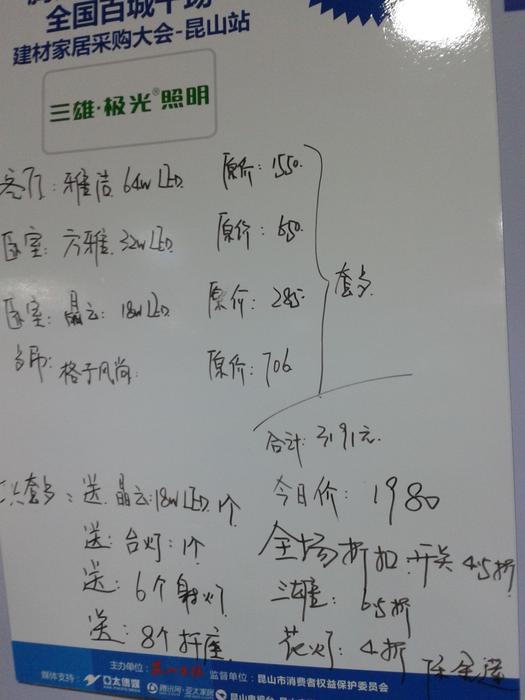 全国百城千场
建材家居采购大会-昆山站
三雄·极光®照明
客厅: 雅洁 64w LED 原价: 1550
卧室: 方雅 32w LED 原价: 650
卧室: 晶云: 18w LED 原价: 285
格子风尚 原价: 706
套餐
合计: 3191元
套餐: 送 晶云: 18w LED 1个
今日价: 1980
送: 台灯: 1个
全场折扣: 开关 4.5折
送: 6个射灯
三雄: 6.5折
送: 8个插座
花灯: 4折
主办单位: 监督单位: 昆山市消费者权益保护委员会
媒体支持: 亚太传媒 腾讯网·亚太家居